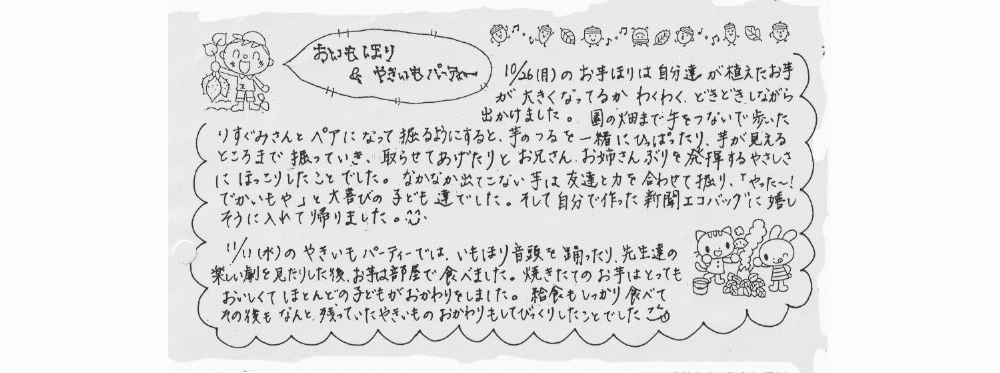 おいもほり
& やきいもパーティー
10/26(月)のお芋ほりは自分達が植えたお芋
が大きくなってるかわくわく、どきどきしながら
出かけました。園の畑まで手をつないで歩いた
りすぐみさんとペアになって掘るようにすると、芋のつるを一緒にひっぱったり、芋が見える
ところまで掘っていき、取らせてあげたりとお兄さん、お姉さんぶりを発揮するやさしさ
にほっこりしたことでした。なかなか出てこない芋は友達と力を合わせて掘り、「やった〜!
でかいもや」と大喜びの子ども達でした。そして自分で作った新聞エコバッグに嬉し
そうに入れて帰りました。
11/11(水)のやきいもパーティーでは、いもほり音頭を踊ったり、先生達の
楽しい劇を見たりした後、お芋は部屋で食べました。焼きたてのお芋はとっても
おいしくてほとんどの子どもがおかわりをしました。給食もしっかり食べて
その後もなんと、残っていたやきいものおかわりもしてびっくりしたことでした